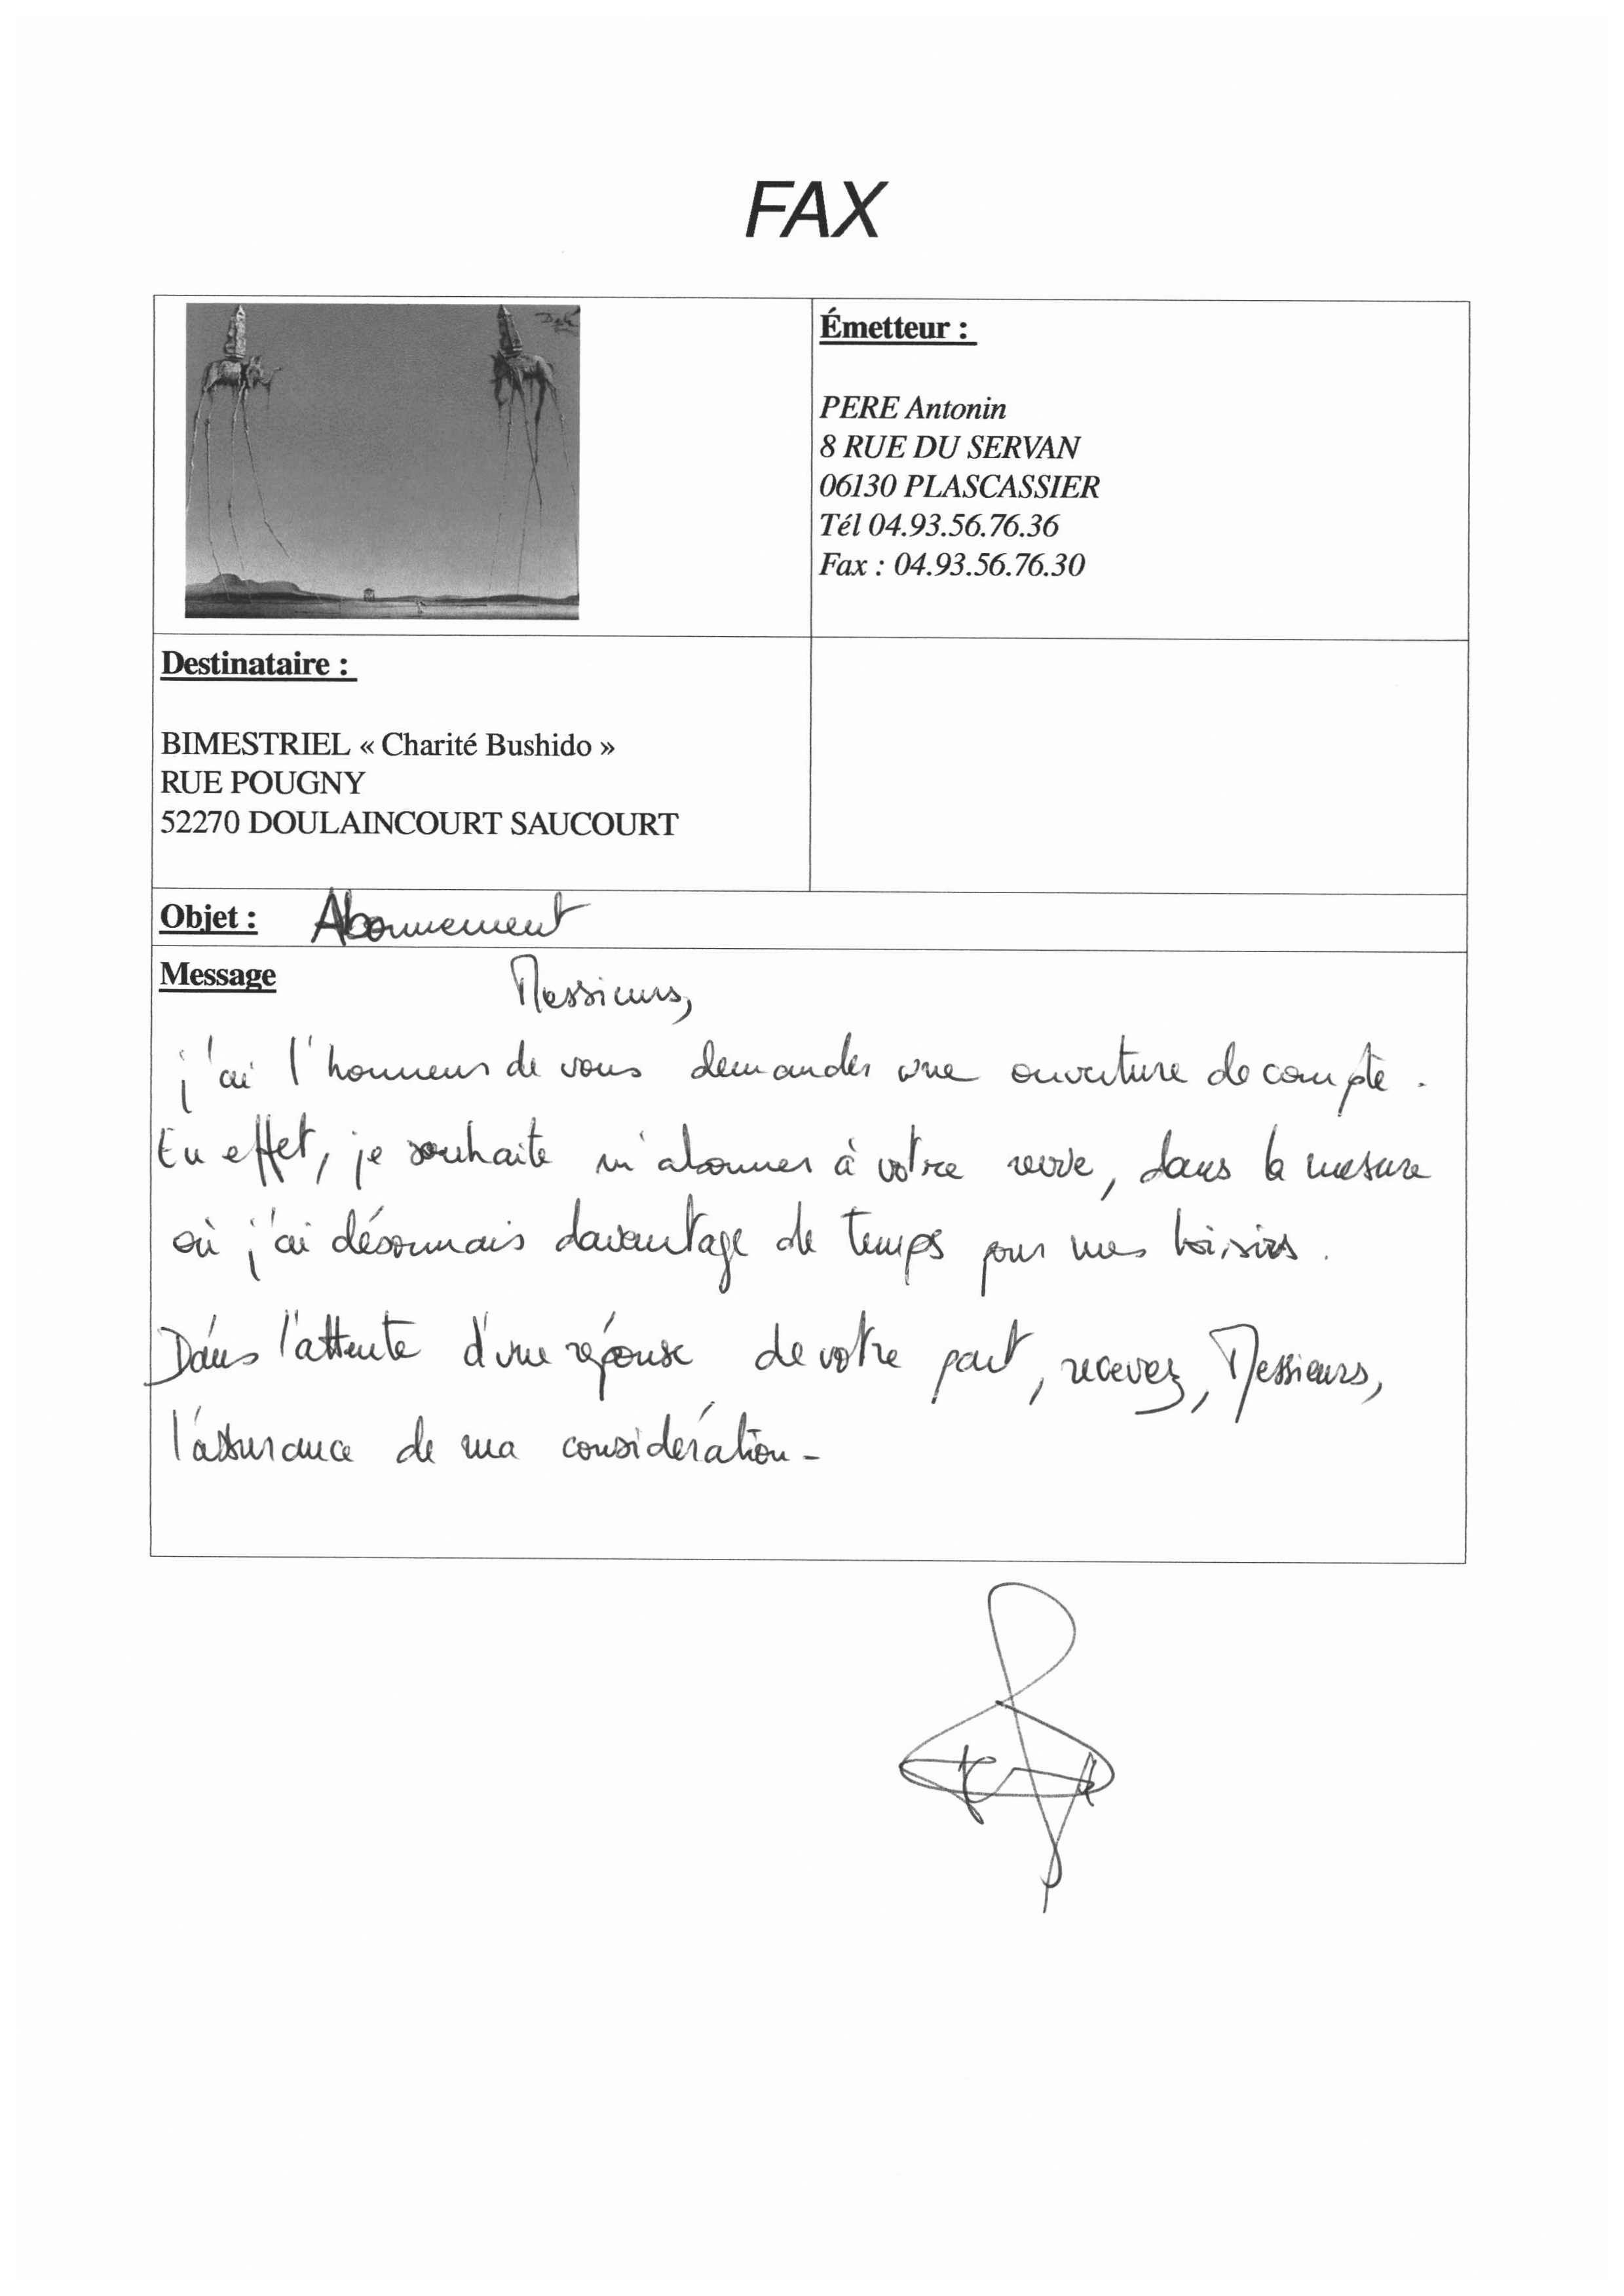 FAX
Émetteur :
PERE Antonin
8 RUE DU SERVAN
06130 PLASCASSIER
Tél 04.93.56.76.36
Fax : 04.93.56.76.30
Destinataire :
BIMESTRIEL « Charité Bushido »
RUE POUGNY
52270 DOULAINCOURT SAUCOURT
Objet : Abonnement
Message
Messieurs,
j'ai l'honneur de vous demander une ouverture de compte.
En effet, je souhaite m'abonner à votre revue, dans la mesure
où j'ai désormais davantage de temps pour mes loisirs.
Dans l'attente d'une réponse de votre part, recevez, Messieurs,
l'assurance de ma considération-